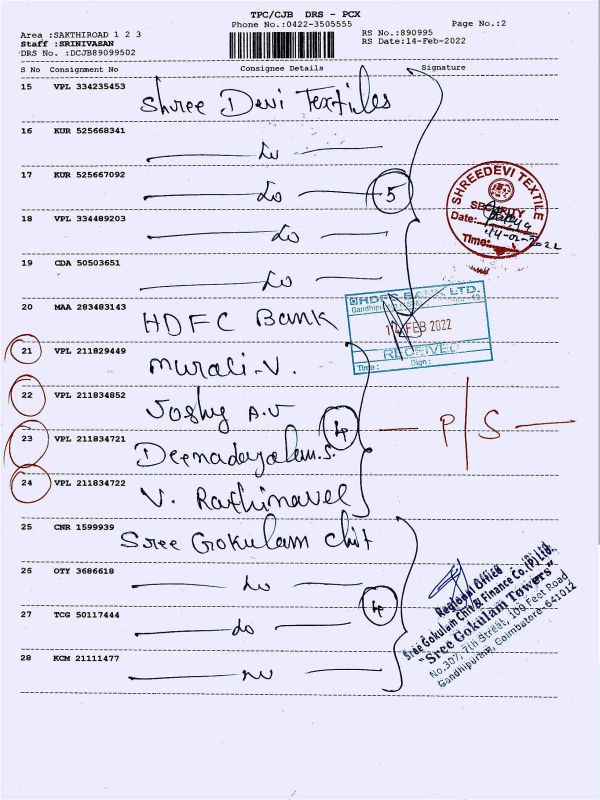 TPC/CJB DRS - PCX
Phone No.:0422-3505555 Page No.:2
Area :SAKTHIROAD 1 2 3 RS No.:890995
Staff :SRINIVASAN RS Date:14-Feb-2022
DRS No. :DCJB89099502
S No Consignment No Consignee Details Signature
15 VPL 334235453 Shree Devi Textiles
16 KUR 525668341 Do
17 KUR 525667092 Do 5
SHREEDEVI TEXTILE
SECURITY
Date:
14-02-2022
Time:
18 VPL 334489203 Do
19 CDA 50503651 Do
20 MAA 283483143 HDFC Bank
HDFC BANK LTD.
14 FEB 2022
RECEIVED
Time : Sign :
21 VPL 211829449 Murali.V.
22 VPL 211834852 Joshy A.V
23 VPL 211834721 Deenadayalan.S. 4 P/S
24 VPL 211834722 V. Rathinavel
25 CNR 1599939 Sree Gokulam Chit
26 OTY 3686618 Do
27 TCG 50117444 Do 4
28 KCM 21111477 Do
Regional Office
Sree Gokulam Chit & Finance Co.(P) Ltd.
"Sree Gokulam Towers"
No.307, 7th Street, 100 Feet Road
Gandhipuram, Coimbatore-641012